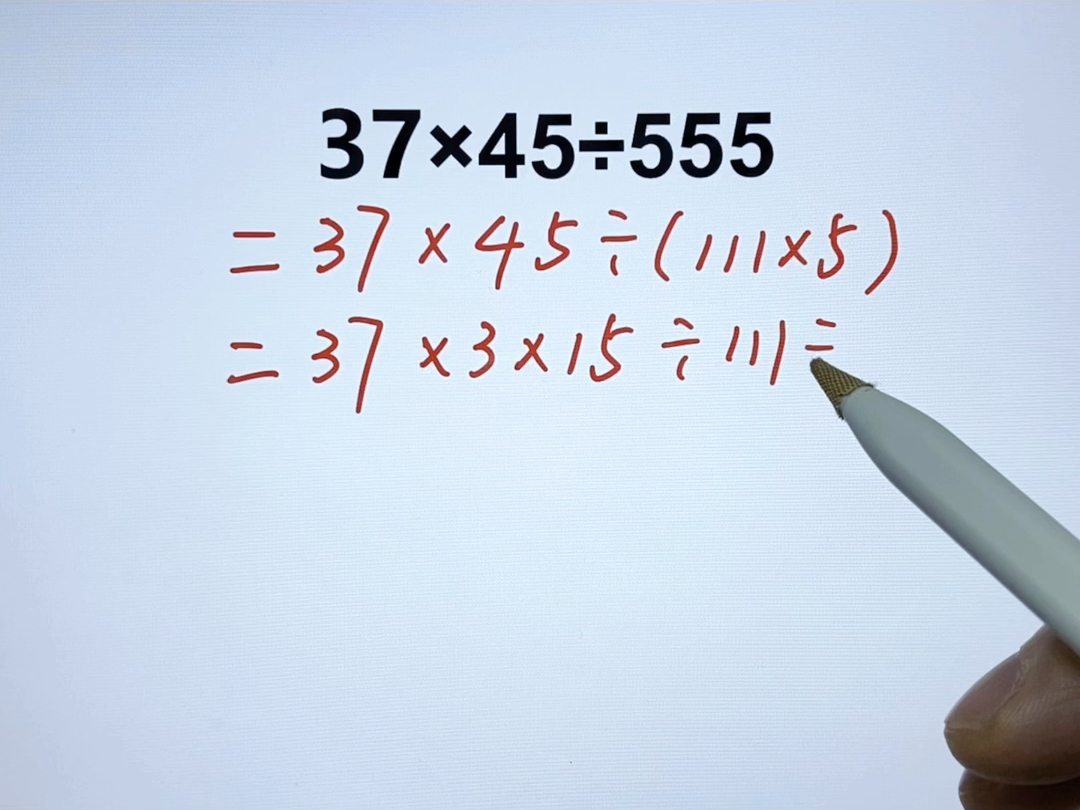 37×45÷555
=37×45÷(111×5)
=37×3×15÷111÷